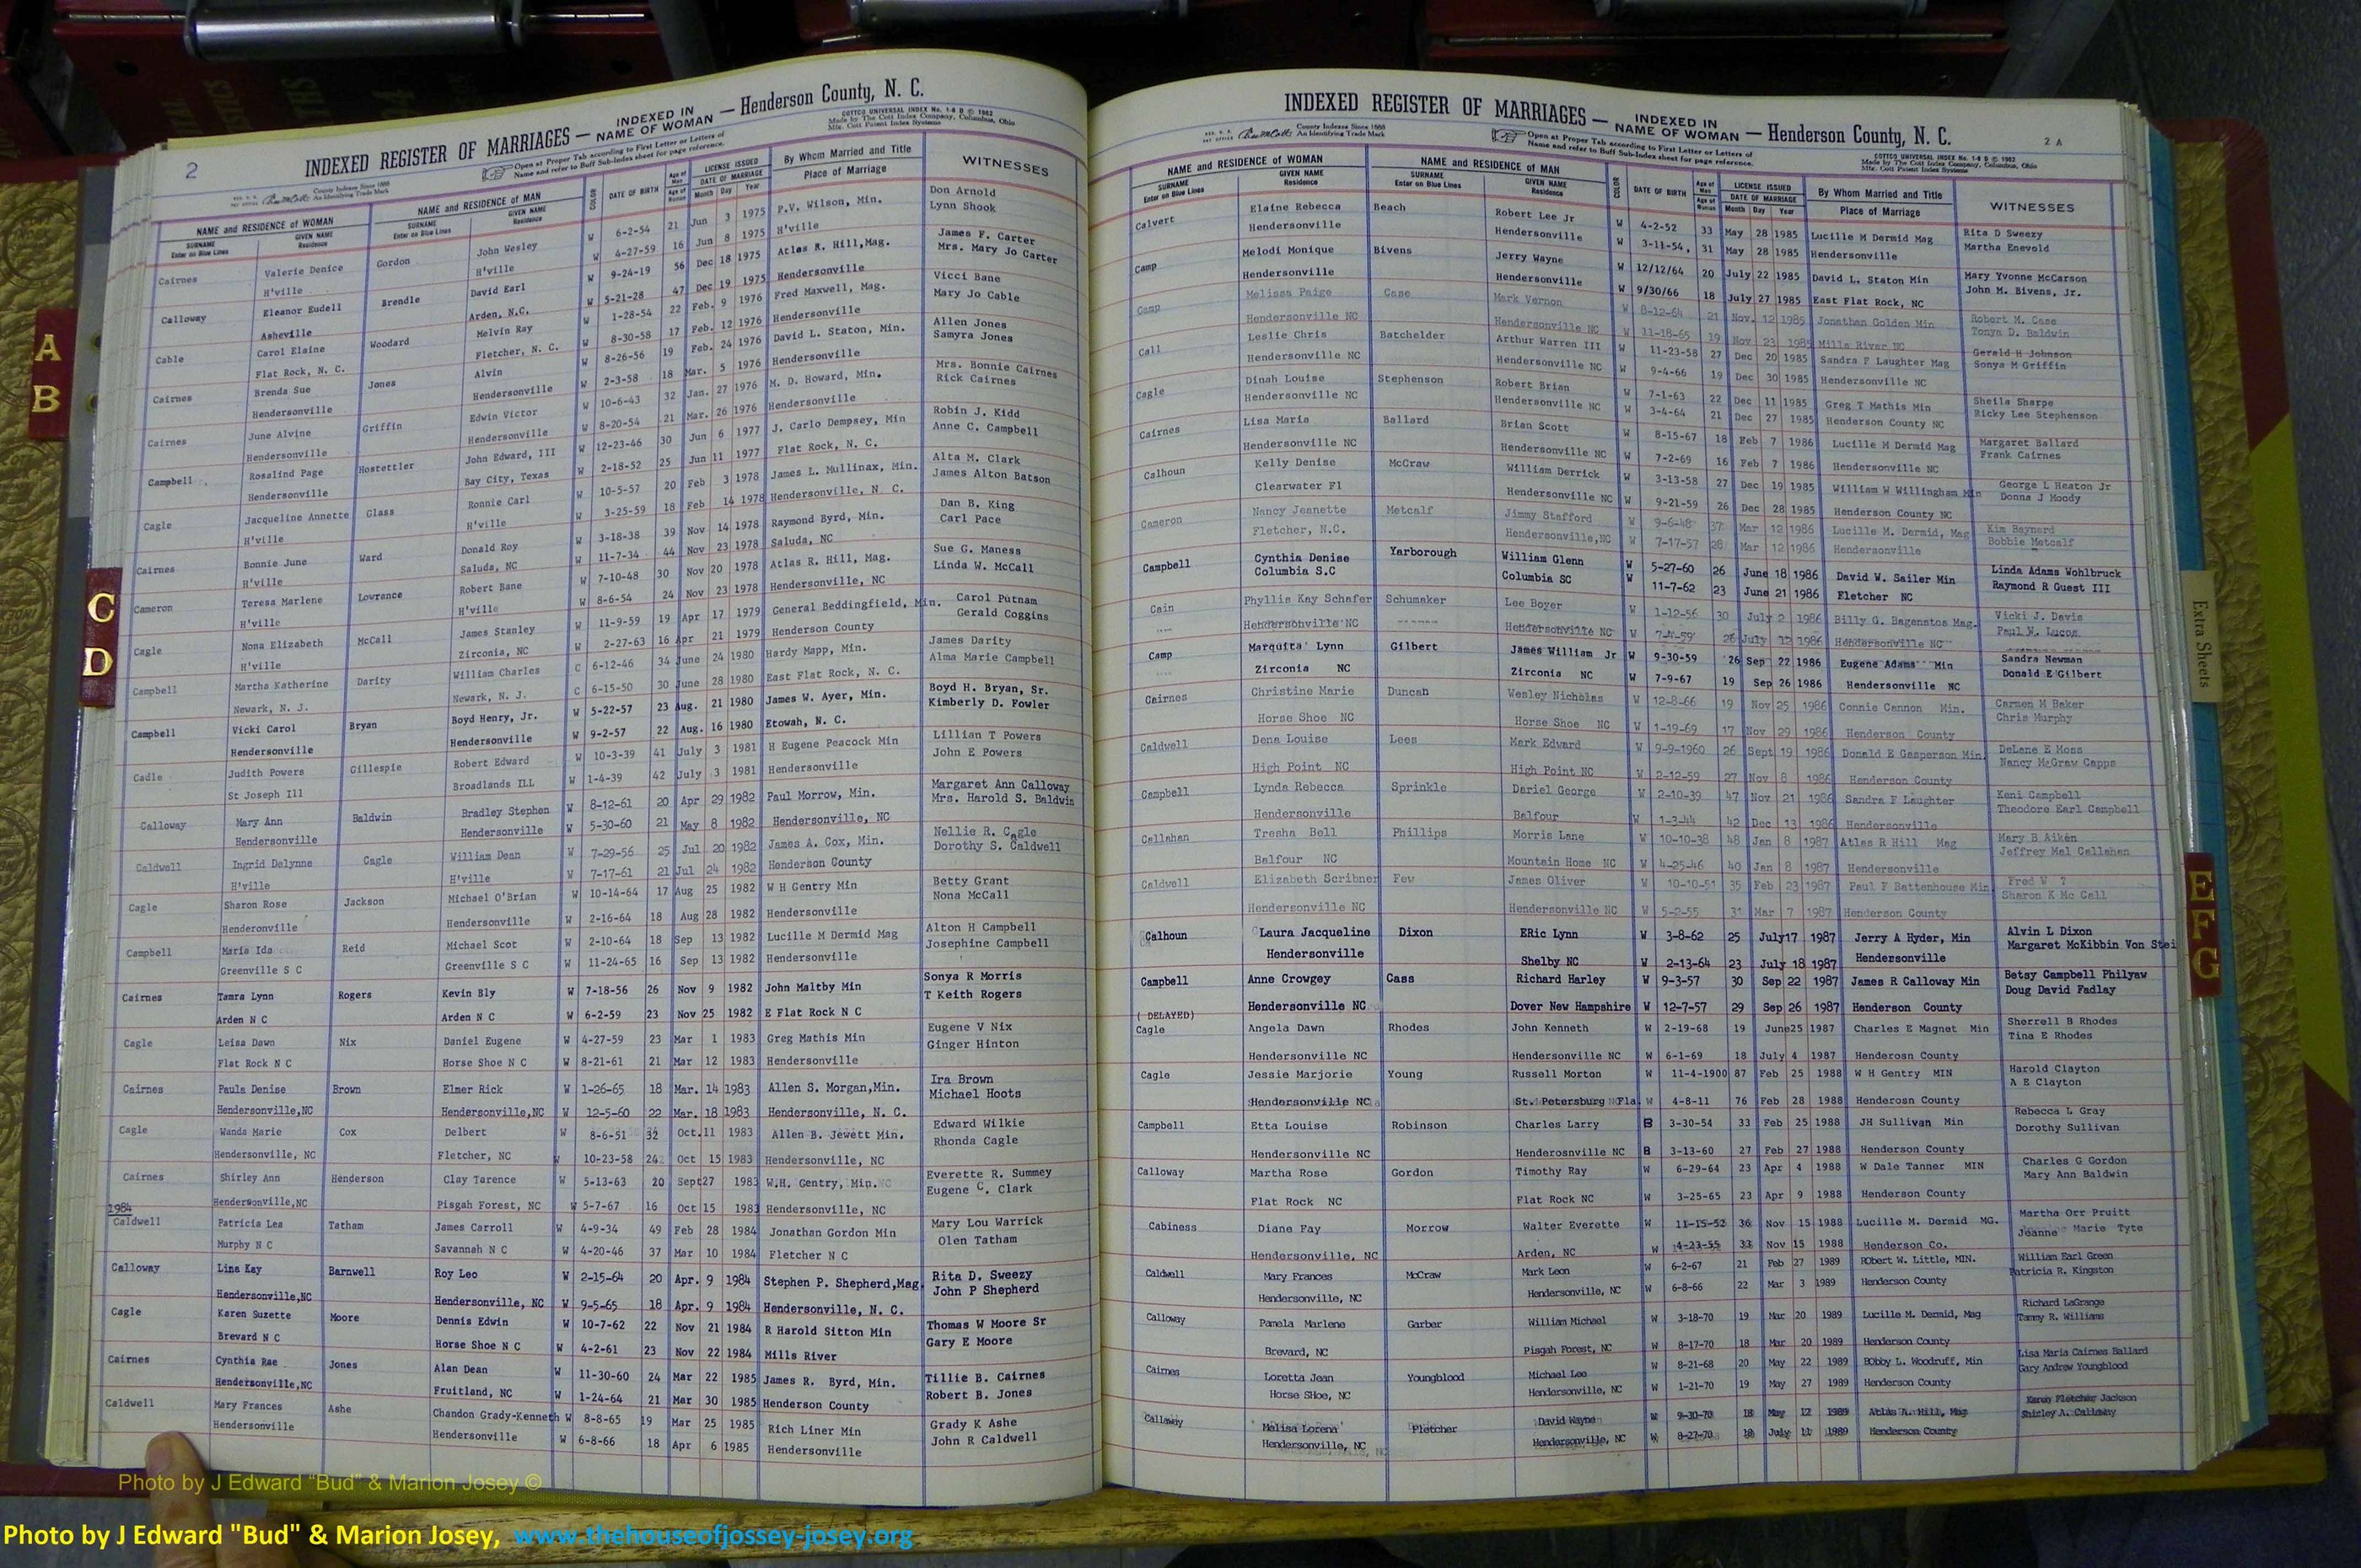 2
INDEXED REGISTER OF MARRIAGES — INDEXED IN NAME OF WOMAN — Henderson County, N. C.
County Indexes Since 1888
An Identifying Trade Mark
Open at Proper Tab according to First Letter or Letters of
Name and refer to Buff Sub-Index sheet for page reference.
COTTCO UNIVERSAL INDEX No. 1-8 D © 1962
Made by The Cott Index Company, Columbus, Ohio
Mfg. Cott Patent Index Systems
NAME and RESIDENCE OF WOMAN NAME and RESIDENCE OF MAN COLOR DATE OF BIRTH Age of Man LICENSE ISSUED By Whom Married and Title WITNESSES
SURNAME Enter on Blue Lines GIVEN NAME Residence SURNAME Enter on Blue Lines GIVEN NAME Residence Age of Woman DATE OF MARRIAGE Month Day Year Place of Marriage
Cairnes Valerie Denice Gordon John Wesley W 6-2-54 21 Jun 3 1975 P.V. Wilson, Min. Don Arnold
H'ville H'ville W 4-27-59 16 Jun 8 1975 H'ville Lynn Shook
Calloway Eleanor Eudell Brendle David Earl W 9-24-19 56 Dec 18 1975 Atlas R. Hill,Mag. James F. Carter
Asheville Arden, N.C. W 5-21-28 47 Dec 19 1975 Hendersonville Mrs. Mary Jo Carter
Cable Carol Elaine Woodard Melvin Ray W 1-28-54 22 Feb. 9 1976 Fred Maxwell, Mag. Vicci Bane
Flat Rock, N. C. Fletcher, N. C. W 8-30-58 17 Feb. 12 1976 Hendersonville Mary Jo Cable
Cairnes Brenda Sue Jones Alvin W 8-26-56 19 Feb. 24 1976 David L. Staton, Min. Allen Jones
Hendersonville Hendersonville W 2-3-58 18 Mar. 5 1976 Hendersonville Samyra Jones
Cairnes June Alvine Griffin Edwin Victor W 10-6-43 32 Jan. 27 1976 M. D. Howard, Min. Mrs. Bonnie Cairnes
Hendersonville Hendersonville W 8-20-54 21 Mar. 26 1976 Hendersonville Rick Cairnes
Campbell Rosalind Page Hostettler John Edward, III W 12-23-46 30 Jun 6 1977 J. Carlo Dempsey, Min Robin J. Kidd
Hendersonville Bay City, Texas W 2-18-52 25 Jun 11 1977 Flat Rock, N. C. Anne C. Campbell
Cagle Jacqueline Annette Glass Ronnie Carl W 10-5-57 20 Feb 3 1978 James L. Mullinax, Min. Alta M. Clark
H'ville H'ville W 3-25-59 18 Feb 14 1978 Hendersonville, N. C. James Alton Batson
Cairnes Bonnie June Ward Donald Roy W 3-18-38 39 Nov 14 1978 Raymond Byrd, Min. Dan B. King
H'ville Saluda, NC W 11-7-34 44 Nov 23 1978 Saluda, NC Carl Pace
Cameron Teresa Marlene Lowrance Robert Bane W 7-10-48 30 Nov 20 1978 Atlas R. Hill, Mag. Sue G. Maness
H'ville H'ville W 8-6-54 24 Nov 23 1978 Hendersonville, NC Linda W. McCall
Cagle Nona Elizabeth McCall James Stanley W 11-9-59 19 Apr 17 1979 General Beddingfield, Min. Carol Putnam
H'ville Zirconia, NC W 2-27-63 16 Apr 21 1979 Henderson County Gerald Coggins
Campbell Martha Katherine Darity William Charles C 6-12-46 34 June 24 1980 Hardy Mapp, Min. James Darity
Newark, N. J. Newark, N. J. C 6-15-50 30 June 28 1980 East Flat Rock, N. C. Alma Marie Campbell
Campbell Vicki Carol Bryan Boyd Henry, Jr. W 5-22-57 23 Aug. 21 1980 James W. Ayer, Min. Boyd H. Bryan, Sr.
Hendersonville Hendersonville W 9-2-57 22 Aug. 16 1980 Etowah, N. C. Kimberly D. Fowler
Cadle Judith Powers Gillespie Robert Edward W 10-3-39 41 July 3 1981 H Eugene Peacock Min Lillian T Powers
St Joseph Ill Broadlands ILL W 1-4-39 42 July 3 1981 Hendersonville John E Powers
Calloway Mary Ann Baldwin Bradley Stephen W 8-12-61 20 Apr 29 1982 Paul Morrow, Min. Margaret Ann Calloway
Hendersonville Hendersonville W 5-30-60 21 May 8 1982 Hendersonville, NC Mrs. Harold S. Baldwin
Caldwell Ingrid Delynne Cagle William Dean W 7-29-56 25 Jul 20 1982 James A. Cox, Min. Nellie R. Cagle
H'ville H'ville W 7-17-61 21 Jul 24 1982 Henderson County Dorothy S. Caldwell
Cagle Sharon Rose Jackson Michael O'Brian W 10-14-64 17 Aug 25 1982 W H Gentry Min Betty Grant
Henderonville Hendersonville W 2-16-64 18 Aug 28 1982 Hendersonville Nona McCall
Campbell Maria Ida Reid Michael Scot W 2-10-64 18 Sep 13 1982 Lucille M Dermid Mag Alton H Campbell
Greenville S C Greenville S C W 11-24-65 16 Sep 13 1982 Hendersonville Josephine Campbell
Cairnes Tamra Lynn Rogers Kevin Bly W 7-18-56 26 Nov 9 1982 John Maltby Min Sonya R Morris
Arden N C Arden N C W 6-2-59 23 Nov 25 1982 E Flat Rock N C T Keith Rogers
Cagle Leisa Dawn Nix Daniel Eugene W 4-27-59 23 Mar 1 1983 Greg Mathis Min Eugene V Nix
Flat Rock N C Horse Shoe N C W 8-21-61 21 Mar 12 1983 Hendersonville Ginger Hinton
Cairnes Paula Denise Brown Elmer Rick W 1-26-65 18 Mar. 14 1983 Allen S. Morgan,Min. Ira Brown
Hendersonville,NC Hendersonville,NC W 12-5-60 22 Mar. 18 1983 Hendersonville, N. C. Michael Hoots
Cagle Wanda Marie Cox Delbert W 8-6-51 32 Oct.11 1983 Allen B. Jewett Min. Edward Wilkie
Hendersonville, NC Fletcher, NC W 10-23-58 24 Oct 15 1983 Hendersonville, NC Rhonda Cagle
Cairnes Shirley Ann Henderson Clay Tarence W 5-13-63 20 Sept27 1983 W.H. Gentry, Min. Everette R. Summey
Hendersonville,NC Pisgah Forest, NC W 5-7-67 16 Oct 15 1983 Hendersonville, NC Eugene C. Clark
1984
Caldwell Patricia Lea Tatham James Carroll W 4-9-34 49 Feb 28 1984 Jonathan Gordon Min Mary Lou Warrick
Murphy N C Savannah N C W 4-20-46 37 Mar 10 1984 Fletcher N C Olen Tatham
Calloway Lina Kay Barnwell Roy Leo W 2-15-64 20 Apr. 9 1984 Stephen P. Shepherd,Mag Rita D. Sweezy
Hendersonville,NC Hendersonville, NC W 9-5-65 18 Apr. 9 1984 Hendersonville, N. C. John P Shepherd
Cagle Karen Suzette Moore Dennis Edwin W 10-7-62 22 Nov 21 1984 R Harold Sitton Min Thomas W Moore Sr
Brevard N C Horse Shoe N C W 4-2-61 23 Nov 22 1984 Mills River Gary E Moore
Cairnes Cynthia Rae Jones Alan Dean W 11-30-60 24 Mar 22 1985 James R. Byrd, Min. Tillie B. Cairnes
Hendersonville,NC Fruitland, NC W 1-24-64 21 Mar 30 1985 Henderson County Robert B. Jones
Caldwell Mary Frances Ashe Chandon Grady-Kenneth W 8-8-65 19 Mar 25 1985 Rich Liner Min Grady K Ashe
Hendersonville Hendersonville W 6-8-66 18 Apr 6 1985 Hendersonville John R Caldwell
INDEXED REGISTER OF MARRIAGES — INDEXED IN NAME OF WOMAN — Henderson County, N. C.
2 A
County Indexes Since 1888
An Identifying Trade Mark
Open at Proper Tab according to First Letter or Letters of
Name and refer to Buff Sub-Index sheet for page reference.
COTTCO UNIVERSAL INDEX No. 1-8 D © 1962
Made by The Cott Index Company, Columbus, Ohio
Mfg. Cott Patent Index Systems
NAME and RESIDENCE OF WOMAN NAME and RESIDENCE OF MAN COLOR DATE OF BIRTH Age of Man LICENSE ISSUED By Whom Married and Title WITNESSES
SURNAME Enter on Blue Lines GIVEN NAME Residence SURNAME Enter on Blue Lines GIVEN NAME Residence Age of Woman DATE OF MARRIAGE Month Day Year Place of Marriage
Calvert Elaine Rebecca Beach Robert Lee Jr W 4-2-52 33 May 28 1985 Lucille M Dermid Mag Rita D Sweezy
Hendersonville Hendersonville W 3-11-54 31 May 28 1985 Hendersonville Martha Enevold
Camp Melodi Monique Bivens Jerry Wayne W 12/12/64 20 July 22 1985 David L. Staton Min Mary Yvonne McCarson
Hendersonville Hendersonville W 9/30/66 18 July 27 1985 East Flat Rock, NC John M. Bivens, Jr.
Camp Melissa Paige Case Mark Vernon W 8-12-64 21 Nov. 12 1985 Jonathan Golden Min Robert M. Case
Hendersonville NC Hendersonville NC W 11-18-65 19 Nov 23 1985 Mills River NC Tonya D. Baldwin
Call Leslie Chris Batchelder Arthur Warren III W 11-23-58 27 Dec 20 1985 Sandra F Laughter Mag Gerald H Johnson
Hendersonville NC Hendersonville NC W 9-4-66 19 Dec 30 1985 Hendersonville NC Sonya M Griffin
Cagle Dinah Louise Stephenson Robert Brian W 7-1-63 22 Dec 11 1985 Greg T Mathis Min Sheila Sharpe
Hendersonville NC Hendersonville NC W 3-4-64 21 Dec 27 1985 Henderson County NC Ricky Lee Stephenson
Cairnes Lisa Maria Ballard Brian Scott W 8-15-67 18 Feb 7 1986 Lucille M Dermid Mag Margaret Ballard
Hendersonville NC Hendersonville NC W 7-2-69 16 Feb 7 1986 Hendersonville NC Frank Cairnes
Calhoun Kelly Denise McCraw William Derrick W 3-13-58 27 Dec 19 1985 William W Willingham Min George L Heaton Jr
Clearwater Fl Hendersonville NC W 9-21-59 26 Dec 28 1985 Henderson County NC Donna J Moody
Cameron Nancy Jeanette Metcalf Jimmy Stafford W 9-6-48 37 Mar 12 1986 Lucille M. Dermid, Mag Kim Baynard
Fletcher, N.C. Hendersonville,NC W 7-17-57 28 Mar 12 1986 Hendersonville Bobbie Metcalf
Campbell Cynthia Denise Yarborough William Glenn W 5-27-60 26 June 18 1986 David W. Sailer Min Linda Adams Wohlbruck
Columbia S.C Columbia SC W 11-7-62 23 June 21 1986 Fletcher NC Raymond R Guest III
Cain Phyllis Kay Schafer Schumaker Lee Boyer W 1-12-56 30 July 2 1986 Billy G. Bagenstos Mag. Vicki J. Davis
Hendersonville NC Hendersonville NC W 26 July 12 1986 Hendersonville NC Paul W. Lucas
Camp Marquita Lynn Gilbert James William Jr W 9-30-59 26 Sep 22 1986 Eugene Adams Min Sandra Newman
Zirconia NC Zirconia NC W 7-9-67 19 Sep 26 1986 Hendersonville NC Donald E Gilbert
Cairnes Christine Marie Duncan Wesley Nicholas W 12-8-66 19 Nov 25 1986 Connie Cannon Min. Carmen M Baker
Horse Shoe NC Horse Shoe NC W 1-19-69 17 Nov 29 1986 Henderson County Chris Murphy
Caldwell Dena Louise Lees Mark Edward W 9-9-1960 26 Sept 19 1986 Donald E Gasperson Min. DeLane E Moss
High Point NC High Point NC W 2-12-59 27 Nov 8 1986 Henderson County Nancy McGraw Capps
Campbell Lynda Rebecca Sprinkle Dariel George W 2-10-39 47 Nov 21 1986 Sandra F Laughter Keni Campbell
Hendersonville Balfour W 1-3-44 42 Dec 13 1986 Hendersonville Theodore Earl Campbell
Callahan Tresha Bell Phillips Morris Lane W 10-10-38 48 Jan 8 1987 Atlas R Hill Mag Mary B Aiken
Balfour NC Mountain Home NC W 4-25-46 40 Jan 8 1987 Hendersonville Jeffrey Mal Callahan
Caldwell Elizabeth Scribner Few James Oliver W 10-10-51 35 Feb 23 1987 Paul F Battenhouse Min Fred W ?
Hendersonville NC Hendersonville NC W 5-2-55 31 Mar 7 1987 Henderson County Sharon K Mc Call
Calhoun Laura Jacqueline Dixon ERic Lynn W 3-8-62 25 July17 1987 Jerry A Hyder, Min Alvin L Dixon
Hendersonville Shelby NC W 2-13-64 23 July 18 1987 Hendersonville Margaret McKibbin Von Stei
Campbell Anne Crowgey Cass Richard Harley W 9-3-57 30 Sep 22 1987 James R Calloway Min Betsy Campbell Philyaw
Hendersonville NC Dover New Hampshire W 12-7-57 29 Sep 26 1987 Henderson County Doug David Fadlay
( DELAYED)
Cagle Angela Dawn Rhodes John Kenneth W 2-19-68 19 June25 1987 Charles E Magnet Min Sherrell B Rhodes
Hendersonville NC Hendersonville NC W 6-1-69 18 July 4 1987 Henderosn County Tina E Rhodes
Cagle Jessie Marjorie Young Russell Morton W 11-4-1900 87 Feb 25 1988 W H Gentry MIN Harold Clayton
Hendersonville NC St. Petersburg Fla. W 4-8-11 76 Feb 28 1988 Henderosn County A E Clayton
Campbell Etta Louise Robinson Charles Larry B 3-30-54 33 Feb 25 1988 JH Sullivan Min Rebecca L Gray
Hendersonville NC Henderosnville NC B 3-13-60 27 Feb 27 1988 Henderson County Dorothy Sullivan
Calloway Martha Rose Gordon Timothy Ray W 6-29-64 23 Apr 4 1988 W Dale Tanner MIN Charles G Gordon
Flat Rock NC Flat Rock NC W 3-25-65 23 Apr 9 1988 Henderson County Mary Ann Baldwin
Cabiness Diane Fay Morrow Walter Everette W 11-15-52 36 Nov 15 1988 Lucille M. Dermid MG. Martha Orr Pruitt
Hendersonville, NC Arden, NC W 4-23-55 33 Nov 15 1988 Henderson Co. Jeanne Marie Tyte
Caldwell Mary Frances McCraw Mark Leon W 6-2-67 21 Feb 27 1989 RObert W. Little, MIN. William Earl Green
Hendersonville, NC Hendersonville, NC W 6-8-66 22 Mar 3 1989 Henderson County Patricia R. Kingston
Calloway Pamela Marlene Garber William Michael W 3-18-70 19 Mar 20 1989 Lucille M. Dermid, Mag Richard LaGrange
Brevard, NC Pisgah Forest, NC W 8-17-70 18 Mar 20 1989 Henderson County Tammy R. Williams
Cairnes Loretta Jean Youngblood Michael Lee W 8-21-68 20 May 22 1989 BObby L. Woodruff, Min Lisa Maria Cairnes Ballard
Horse SHoe, NC Hendersonville, NC W 1-21-70 19 May 27 1989 Henderson County Gary Andrew Youngblood
Calloway Melisa Lorena Fletcher David Wayne W 9-30-70 18 May 12 1989 Atlas A. Hill, Mag Karen Fletcher Jackson
Hendersonville, NC Hendersonville, NC W 8-27-70 18 July 11 1989 Henderson County Shirley A. Callaway
A
B
C
D
Extra Sheets
E
F
G
Photo by J Edward "Bud" & Marion Josey ©
Photo by J Edward "Bud" & Marion Josey, www.thehouseofjossey-josey.org